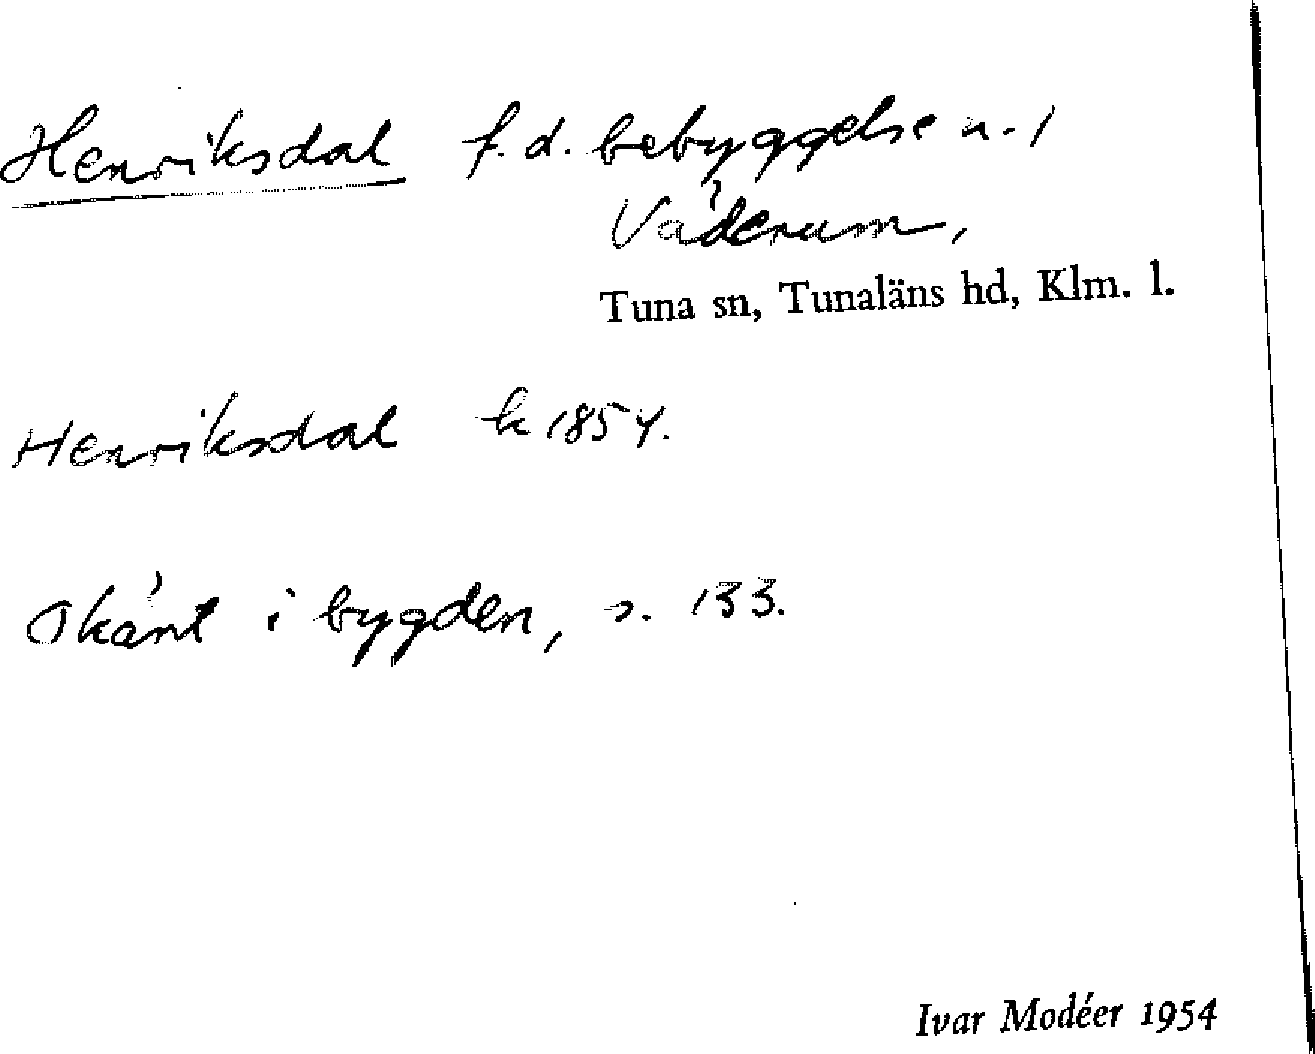 Henriksdal f.d. bebyggelse u. /
Väderum,
Tuna sn, Tunaläns hd, Klm. l.
Henriksdal k 1854.
Okänt i bygden, s. 133.
Ivar Modéer 1954